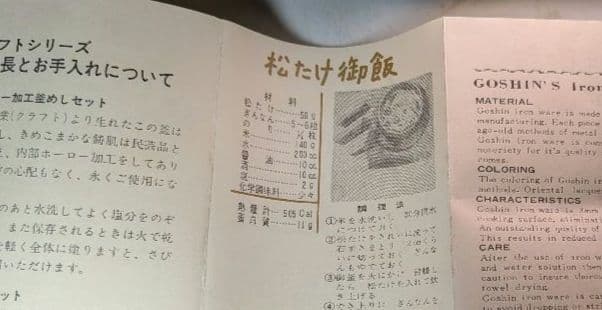 フトシリーズ
長とお手入れについて
ー加工釜めしセット
業(クラフト)より生れたこの釜は
し、きめこまかな鋳肌は民芸品と
、内部ホーロー加工をしてあり
の心配もなく、永くご使用にな
のあと水洗してよく塩分をのぞ
また保存されるときは火で乾
を軽く全体に塗りますと、さび
用いただけます。
ット
松たけ御飯
材料
松たけ 50g
ぎんなん 5~6粒
のり ½枚
米 140g
水 200cc
醤油 10cc
酒 10cc
塩 2g
化学調味料 少々
熱量計 505 Cal
蛋白質 11g
調理法
①米を水洗いし
につけておく
②松たけをきれいに洗って
石づきをとり
いに切っておく ぎんな
んもゆでておく
③御釜を火にかけ
たら 松たけを入れて炊
き上げる
④でき上りに ぎんなんを
GOSHIN'S Iron
MATERIAL
Goshin iron ware is made
manufacturing. Each piece
age-old methods of metal
Goshin iron ware is
notoriety for it's quality
comes.
COLORING
The coloring of Goshin
methods. Oriental lacque
CHARACTERISTICS
Goshin iron ware is
cooking surface, eliminat
An outstanding quality of
This results in reduced
CARE
After the use of iron w
and water solution then
caution to insure thorou
towel drying.
Goshin iron ware is ca
to avoid dropping or stri